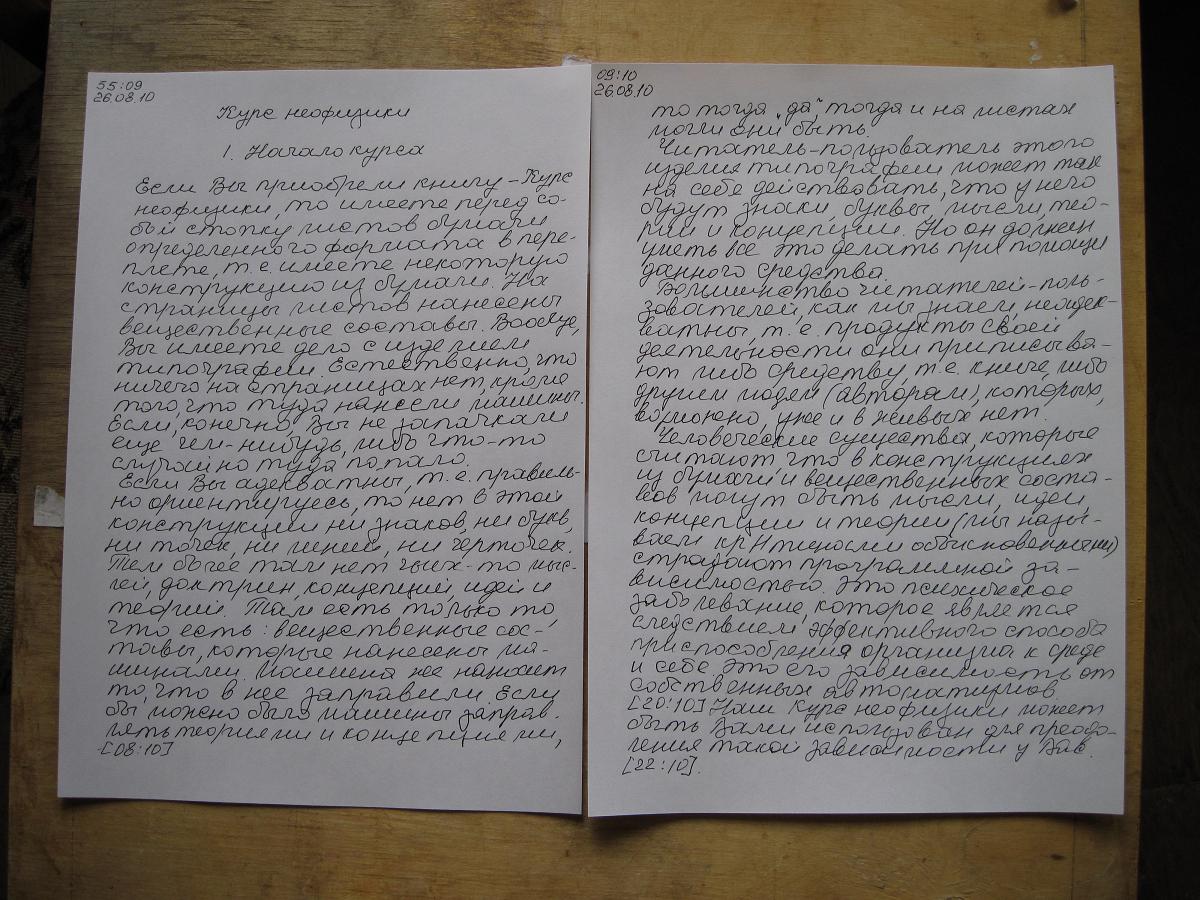 55:09
26.08.10
Курс неофизики
1. Начало курса
Если Вы приобрели книгу – Курс
неофизики, то имеете перед со-
бой стопку листов бумаги
определенного формата в пере-
плете, т.е. имеете некоторую
конструкцию из бумаги. На
страницы листов нанесены
вещественные составы. Вообще,
Вы имеете дело с изделием
типографии. Естественно, что
ничего на страницах нет, кроме
того, что туда нанесли машины.
Если, конечно, Вы не запачкали
еще чем-нибудь, либо что-то
случайно туда попало.
Если Вы адекватны, т.е. правиль-
но ориентируесь, то нет в этой
конструкции ни знаков, ни букв,
ни точек, ни линий, ни черточек.
Тем более там нет чьих-то мыс-
лей, доктрин, концепций, идей и
теорий. Там есть только то,
что есть: вещественные сос-
тавы, которые нанесены ма-
шинами. Машина же наносит
то, что в нее заправили. Если
бы можно было машины заправ-
лять теориями и концепциями,
[08:10]
09:10
26.08.10
то тогда „да“, тогда и на листах
могли они быть.
Читатель-пользователь этого
изделия типографии может так
на себе действовать, что у него
будут знаки, буквы, мысли, тео-
рии и концепции. Но он должен
уметь все это делать при помощи
данного средства.
Большинство читателей-поль-
зователей, как мы знаем, неадек-
ватны, т.е. продукты своей
деятельности они приписыва-
ют либо средству, т.е. книге, либо
другим людям (авторам), которых,
возможно, уже и в живых нет.
Человеческие существа, которые
считают, что в конструкциях
из бумаги и вещественных соста-
вов могут быть мысли, идеи,
концепции и теории (мы назы-
ваем их обыкновенными)
страдают программной за-
висимостью. Это психическое
заболевание, которое является
следствием эффективного способа
приспособления организма к среде
и себе. Это его зависимость от
собственных автоматизмов.
[20:10] Наш Курс неофизики может
быть Вами использован для преодо-
ления такой зависимости у Вас.
[22:10].